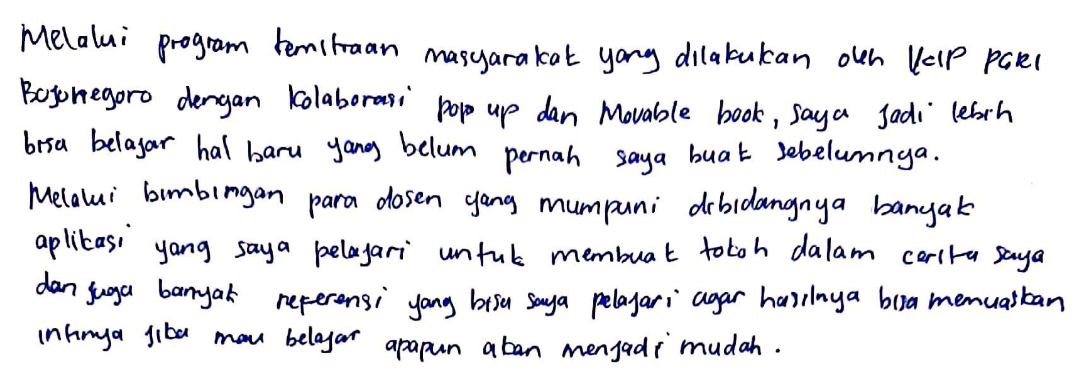 Melalui program kemitraan masyarakat yang dilakukan oleh IKIP PGRI
Bojonegoro dengan kolaborasi pop up dan Movable book, saya jadi lebih
bisa belajar hal baru yang belum pernah saya buat sebelumnya.
Melalui bimbingan para dosen yang mumpuni dibidangnya banyak
aplikasi yang saya pelajari untuk membuat tokoh dalam cerita saya
dan juga banyak referensi yang bisa saya pelajari agar hasilnya bisa memuaskan
intinya jika mau belajar apapun akan menjadi mudah.